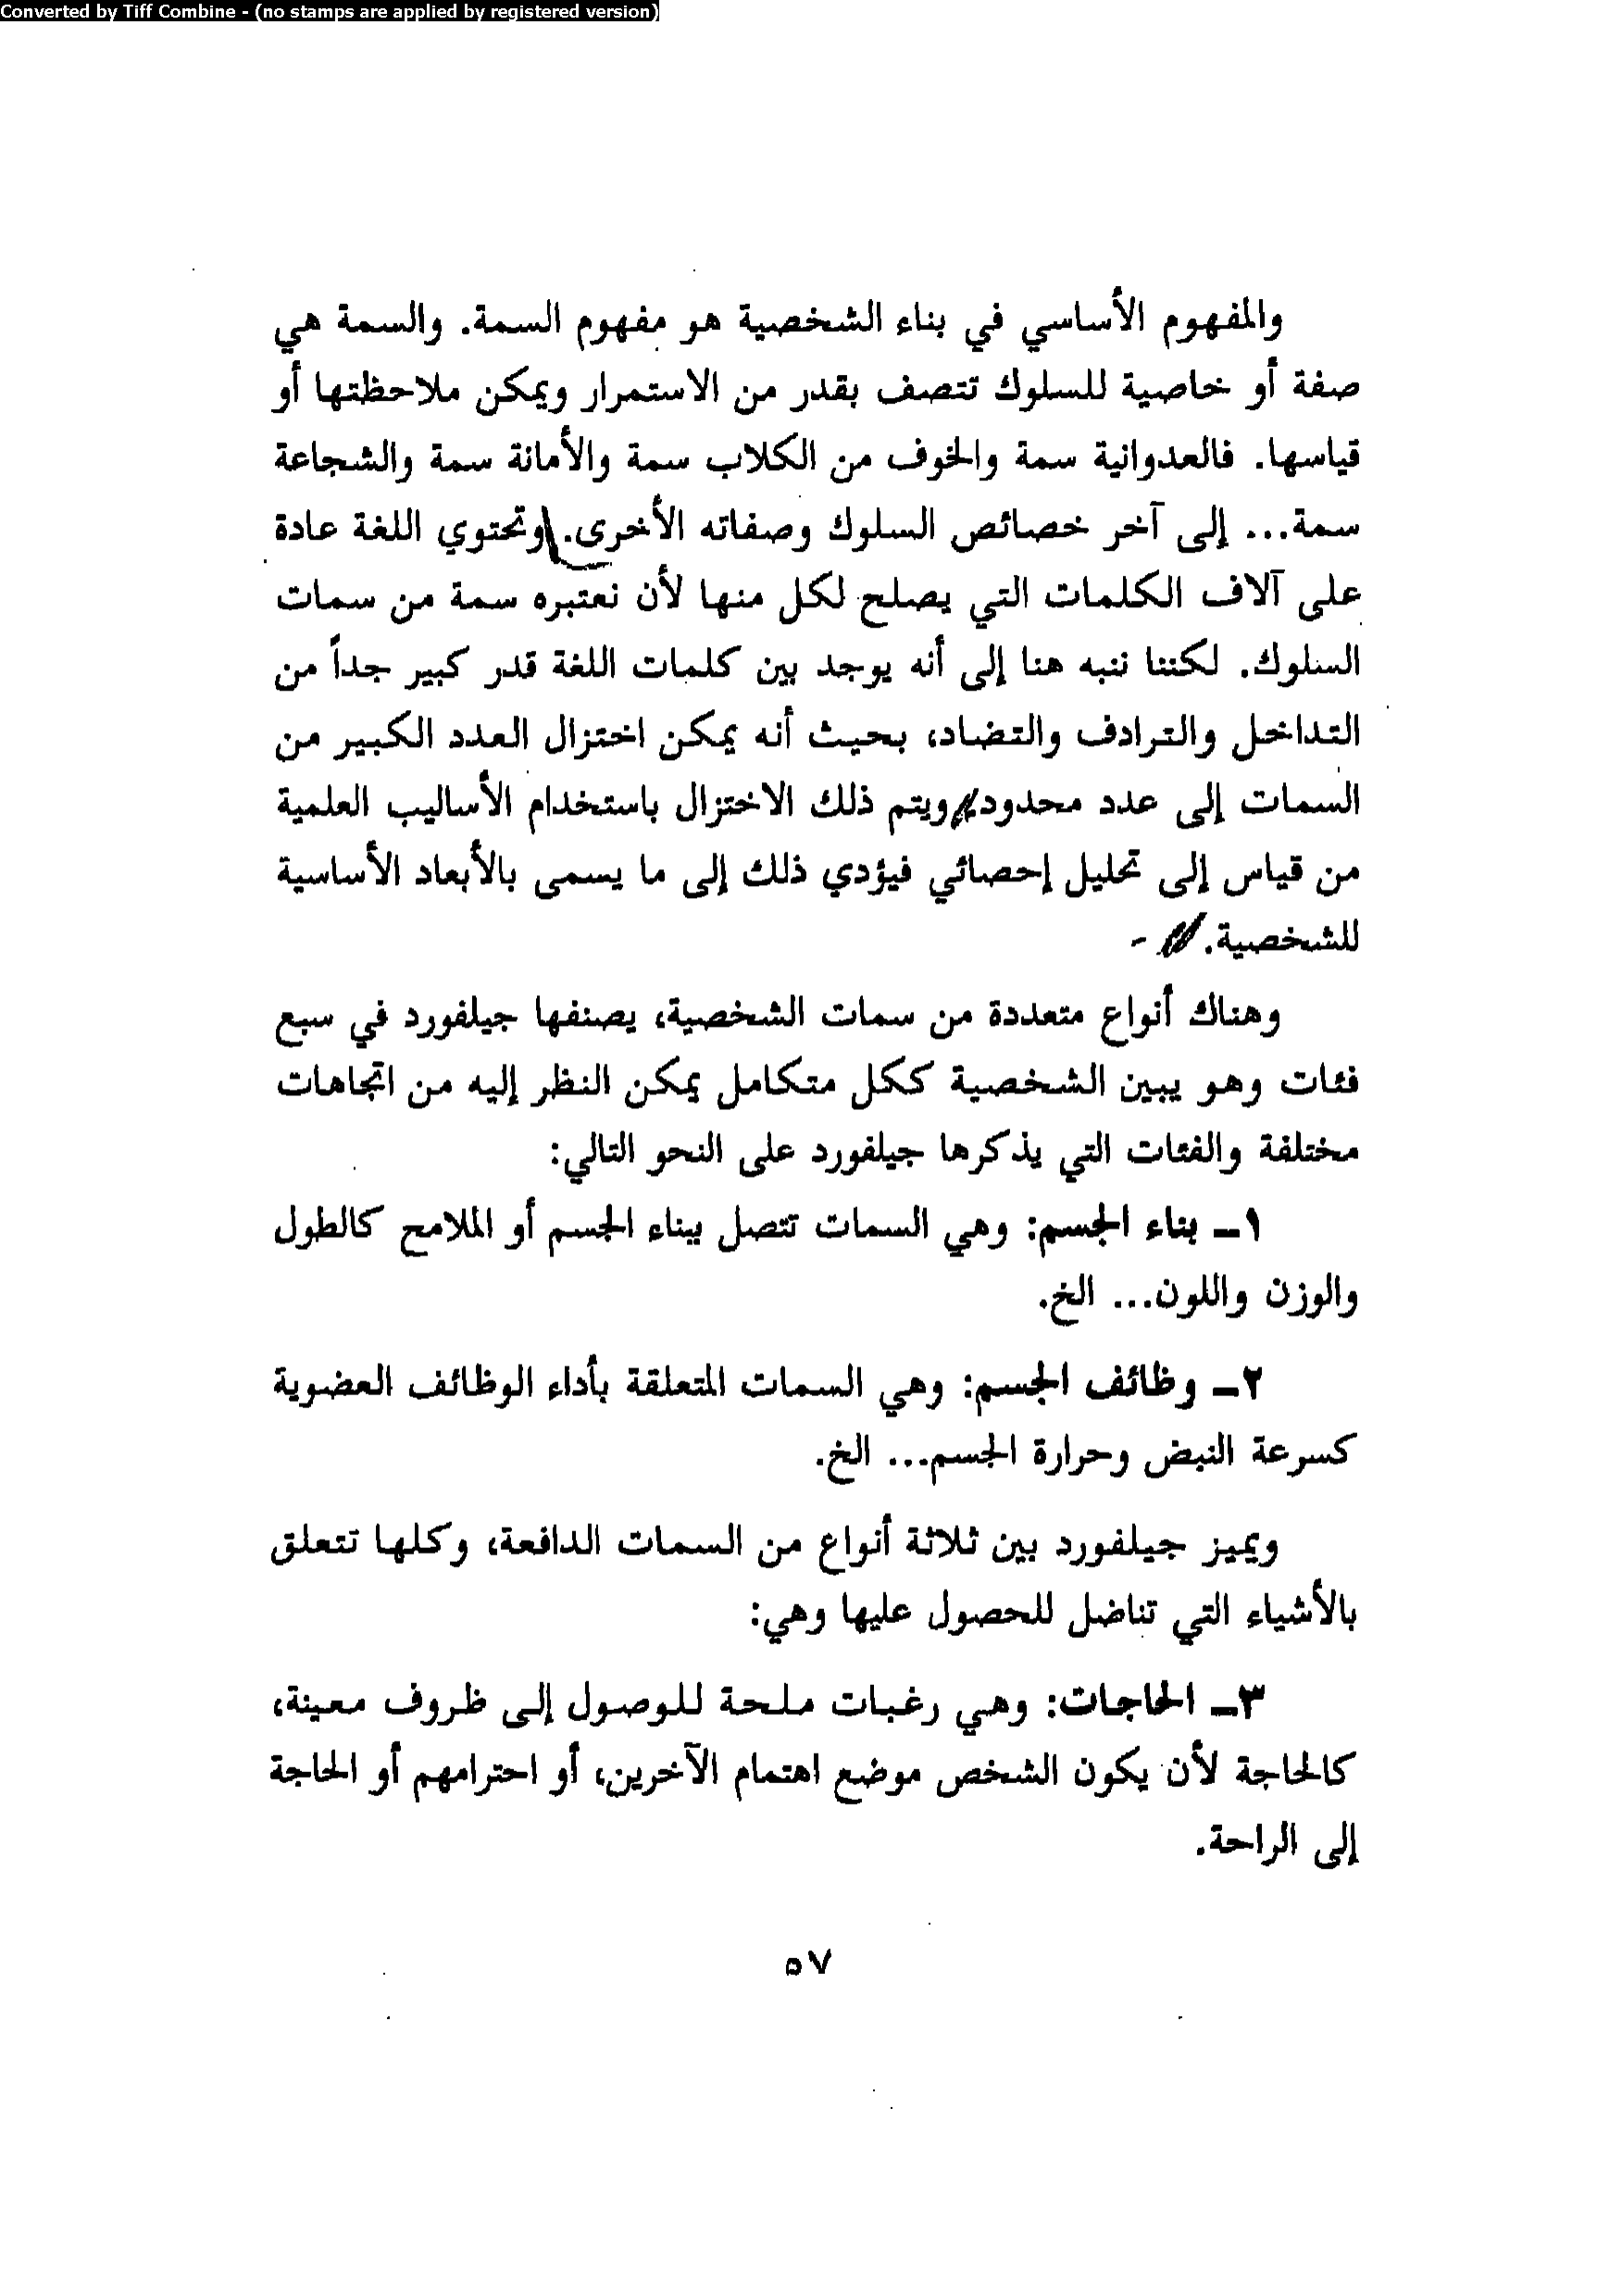 Converted by Tiff Combine - (no stamps are applied by registered version)
والمفهوم الأساسي في بناء الشخصية هو مفهوم السمة. والسمة هي
صفة أو خاصية للسلوك تتصف بقدر من الاستمرار ويمكن ملاحظتها أو
قياسها. فالعدوانية سمة والخوف من الكلاب سمة والأمانة سمة والشجاعة
سمة... إلى آخر خصائص السلوك وصفاته الأخرى. وتحتوي اللغة عادة
على آلاف الكلمات التي يصلح لكل منها لأن نعتبره سمة من سمات
السلوك. لكننا ننبه هنا إلى أنه يوجد بين كلمات اللغة قدر كبير جداً من
التداخل والترادف والتضاد، بحيث أنه يمكن اختزال العدد الكبير من
السمات إلى عدد محدود ويتم ذلك الاختزال باستخدام الأساليب العلمية
من قياس إلى تحليل إحصائي فيؤدي ذلك إلى ما يسمى بالأبعاد الأساسية
للشخصية.
وهناك أنواع متعددة من سمات الشخصية، يصنفها جيلفورد في سبع
فئات وهو يبين الشخصية ككل متكامل يمكن النظر إليه من اتجاهات
مختلفة والفئات التي يذكرها جيلفورد على النحو التالي:
١ـ بناء الجسم: وهي السمات تتصل ببناء الجسم أو الملامح كالطول
والوزن واللون... الخ.
٢ـ وظائف الجسم: وهي السمات المتعلقة بأداء الوظائف العضوية
كسرعة النبض وحرارة الجسم... الخ.
ويميز جيلفورد بين ثلاثة أنواع من السمات الدافعة، وكلها تتعلق
بالأشياء التي تناضل للحصول عليها وهي:
٣ـ الحاجات: وهي رغبات ملحة للوصول إلى ظروف معينة،
كالحاجة لأن يكون الشخص موضع اهتمام الآخرين، أو احترامهم أو الحاجة
إلى الراحة.
٥٧